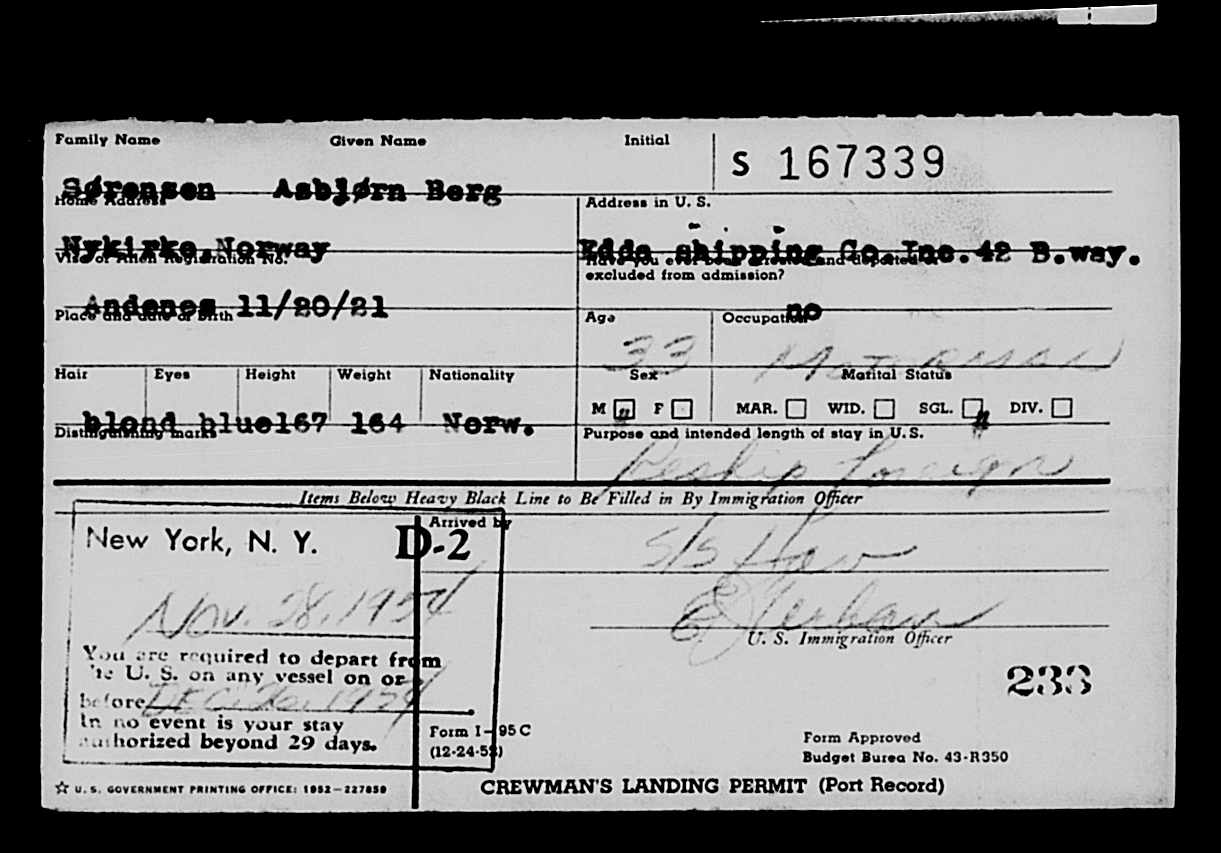 Family Name Given Name Initial S 167339
Sørensen Asbjørn Berg
Home Address Address in U. S.
Nykirke, Norway Edde shipping Co.Inc.42 B.way.
Visa or Alien Registration No. Have you ever been arrested and deported or
excluded from admission?
Andenes 11/20/21 no
Place and date of Birth Age Occupation
33 MOTORMAN
Hair Eyes Height Weight Nationality Sex Marital Status
M F MAR. WID. SGL. DIV.
blond blue167 164 Norw.
Distinguishing marks Purpose and intended length of stay in U.S.
Reship Foreign
Items Below Heavy Black Line to Be Filled in By Immigration Officer
Arrived by
New York, N. Y. D-2 S/S
Nov. 28, 1954
U. S. Immigration Officer
You are required to depart from
the U. S. on any vessel on or
before DEC. 26, 1954
In no event is your stay
authorized beyond 29 days.
233
Form I-95C
(12-24-52)
Form Approved
Budget Burea No. 43-R350
☆ U. S. GOVERNMENT PRINTING OFFICE: 1952—227859
CREWMAN'S LANDING PERMIT (Port Record)